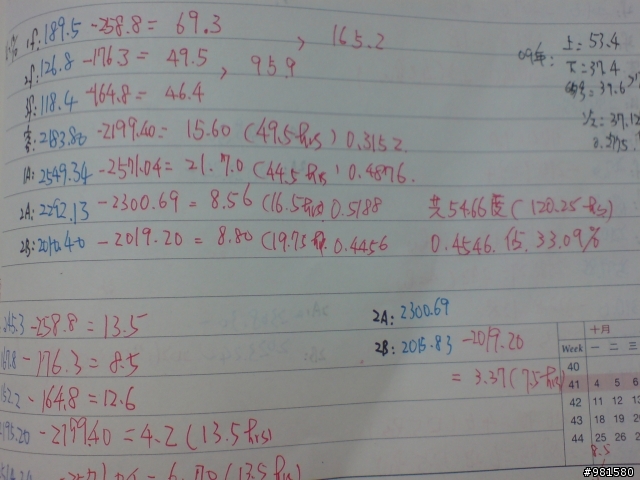 1f: 189.5 -258.8 = 69.3 , 165.2
2f: 126.8 -176.3 = 49.5 , 95.9
118.4 -164.8 = 46.4
2183.80 -2199.40 = 15.60 (49.5 hrs) 0.3152
1A: 2549.34 -2571.04 = 21.70 (44.5 hrs) 0.4876.
2A: 2292.13 -2300.69 = 8.56 (16.5 hrs) 0.5188 共54.66度 (120.25 hrs)
2B: 2010.40 - 2019.20 = 8.80 (19.75 0.4456 0.4546. 佔. 33.09%
09年: 上: 53.4
下: 37.4
37.6
37.12
245.3 -258.8 = 13.5
167.8 - 176.3 = 8.5
152.2 - 164.8 = 12.6
2195.20 -2199.40 = 4.2 (13.5 hrs)
= 6.70 (13.5 hrs)
2A: 2300.69
2B: 2015.83 -2019.20
= 3.37 (7.5 hrs)
十月
Week 一 二 三
40
41 4 5 6
42 11 12 13
43 18 19 20
44 25 26
8.5
#981580